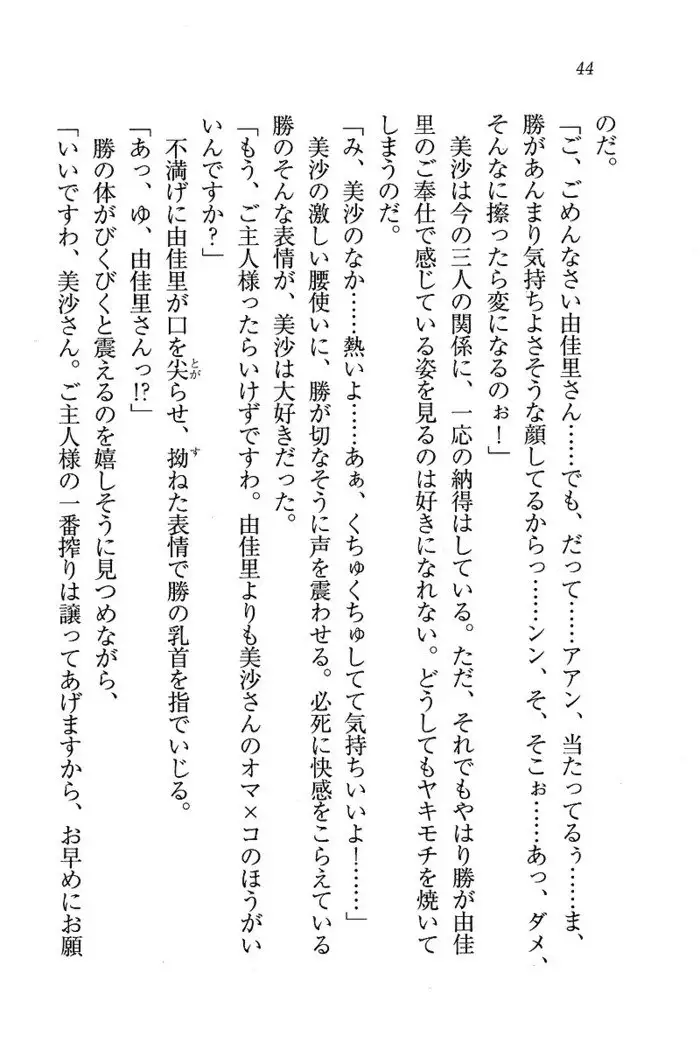 44
のだ。
「ご、ごめんなさい由佳里さん……でも、だって……アアン、当たってるぅ……ま、
勝があんまり気持ちよさそうな顔してるからっ……ンン、そ、そこぉ……あっ、ダメ、
そんなに擦ったら変になるのぉ！」
美沙は今の三人の関係に、一応の納得はしている。ただ、それでもやはり勝が由佳
里のご奉仕で感じている姿を見るのは好きになれない。どうしてもヤキモチを焼いて
しまうのだ。
「み、美沙のなか……熱いよ……あぁ、くちゅくちゅしてて気持ちいいよ！……」
美沙の激しい腰使いに、勝が切なそうに声を震わせる。必死に快感をこらえている
勝のそんな表情が、美沙は大好きだった。
「もう、ご主人様ったらいけずですわ。由佳里よりも美沙さんのオマ×コのほうがい
いんですか？」
不満げに由佳里が口を尖らせ、拗ねた表情で勝の乳首を指でいじる。
とが
す
「あっ、ゆ、由佳里さんっ!?」
勝の体がびくびくと震えるのを嬉しそうに見つめながら、
「いいですわ、美沙さん。ご主人様の一番搾りは譲ってあげますから、お早めにお願